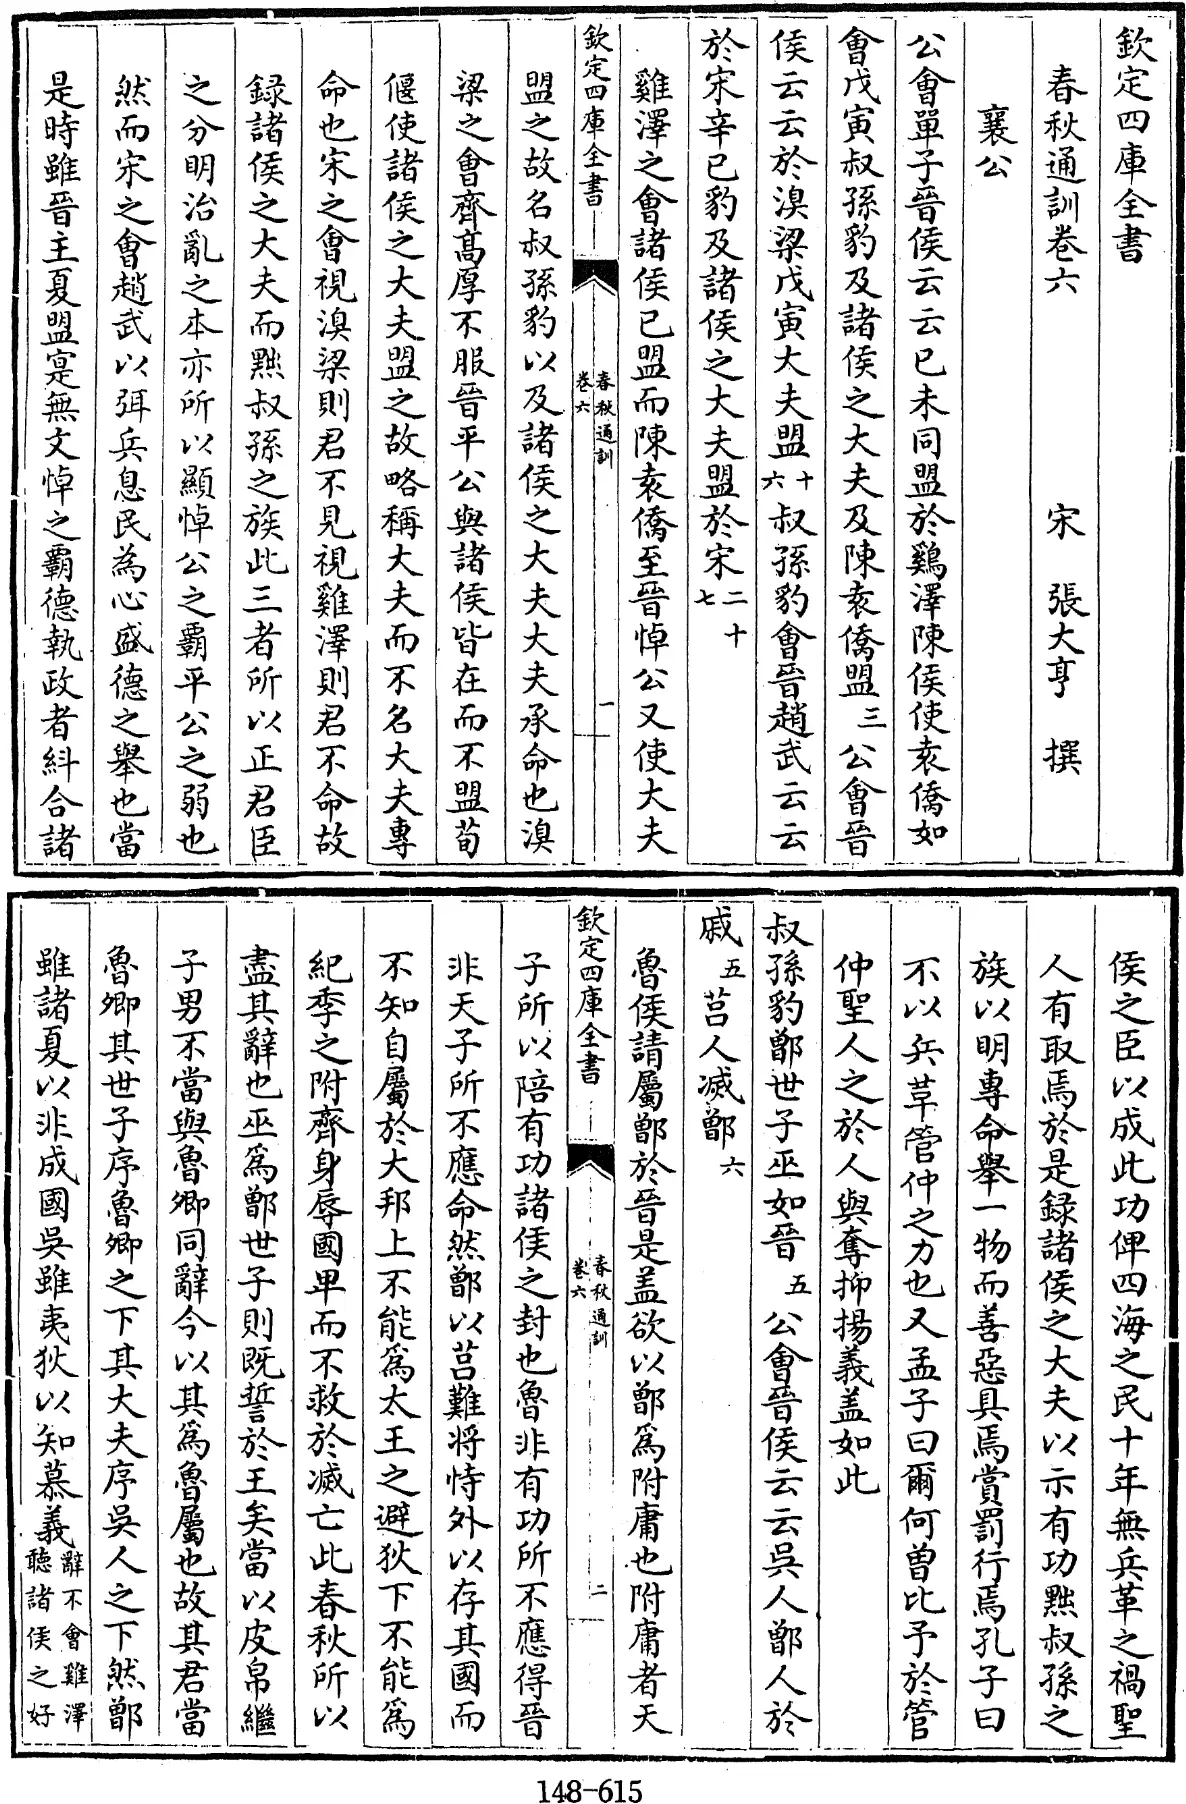 欽定四庫全書
春秋通訓卷六
宋 張大亨 撰
襄公
公會單子晉侯云云已未同盟於鷄澤陳侯使袁僑如
會戊寅叔孫豹及諸侯之大夫及陳袁僑盟三公會晉
侯云云於湨梁戊寅大夫盟十六叔孫豹會晉趙武云云
於宋辛巳豹及諸侯之大夫盟於宋二十七
雞澤之會諸侯已盟而陳袁僑至晉悼公又使大夫
欽定四庫全書
春秋通訓
卷六
一
盟之故名叔孫豹以及諸侯之大夫大夫承命也湨
梁之會齊高厚不服晉平公與諸侯皆在而不盟荀
偃使諸侯之大夫盟之故略稱大夫而不名大夫專
命也宋之會視湨梁則君不見視雞澤則君不命故
録諸侯之大夫而黜叔孫之族此三者所以正君臣
之分明治亂之本亦所以顯悼公之霸平公之弱也
然而宋之會趙武以弭兵息民為心盛德之舉也當
是時雖晉主夏盟寔無文悼之霸德執政者糾合諸
侯之臣以成此功俾四海之民十年無兵革之禍聖
人有取焉於是録諸侯之大夫以示有功黜叔孫之
族以明專命舉一物而善惡具焉賞罰行焉孔子曰
不以兵革管仲之力也又孟子曰爾何曾比予於管
仲聖人之於人與奪抑揚義盖如此
叔孫豹鄫世子巫如晉五公會晉侯云云吳人鄫人於
戚五莒人滅鄫六
魯侯請屬鄫於晉是盖欲以鄫爲附庸也附庸者天
欽定四庫全書
春秋通訓
卷六
二
子所以陪有功諸侯之封也魯非有功所不應得晉
非天子所不應命然鄫以莒難將恃外以存其國而
不知自屬於大邦上不能爲太王之避狄下不能爲
紀季之附齊身辱國卑而不救於滅亡此春秋所以
盡其辭也巫爲鄫世子則既誓於王矣當以皮帛繼
子男不當與魯卿同辭今以其爲魯屬也故其君當
魯卿其世子序魯卿之下其大夫序吳人之下然鄫
雖諸夏以非成國吳雖夷狄以知慕義辭不會雞澤聽諸侯之好
148-615